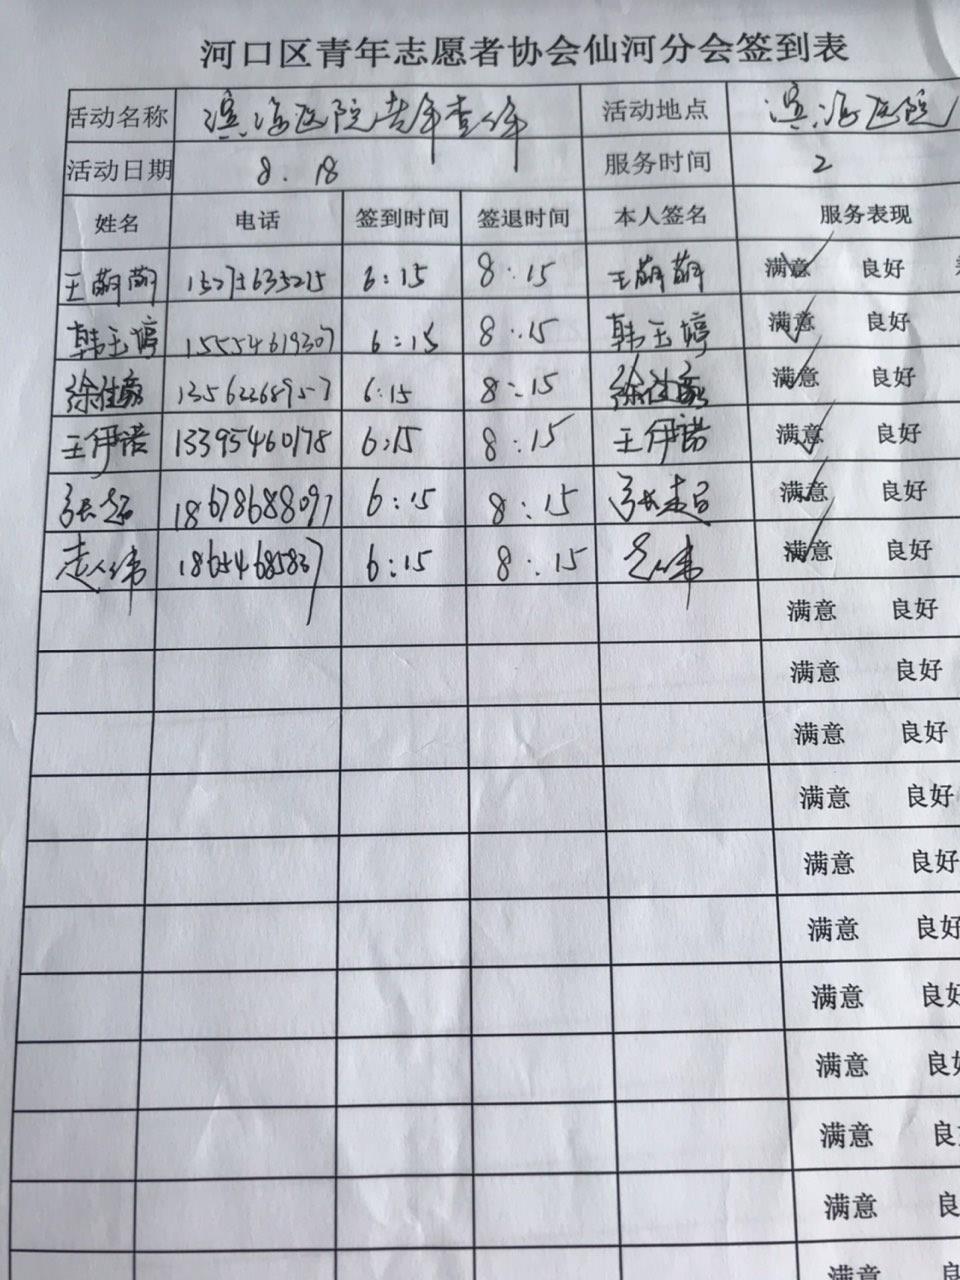 河口区青年志愿者协会仙河分会签到表
活动名称 滨海医院老年查体 活动地点 滨海医院
活动日期 8.18 服务时间 2
姓名 电话 签到时间 签退时间 本人签名 服务表现
王萌萌 6:15 8:15 王萌萌 满意 良好
韩玉婷 15554619307 6:15 8:15 韩玉婷 满意 良好
13562268957 6:15 8:15 满意 良好
王伊诺 13395460178 6:15 8:15 王伊诺 满意 良好
张超 18678688097 6:15 8:15 张超 满意 良好
18654685837 6:15 8:15 满意 良好
满意 良好
满意 良好
满意 良好
满意 良好
满意 良好
满意 良好
满意 良好
满意 良好
满意 良
满意 良
满意 良